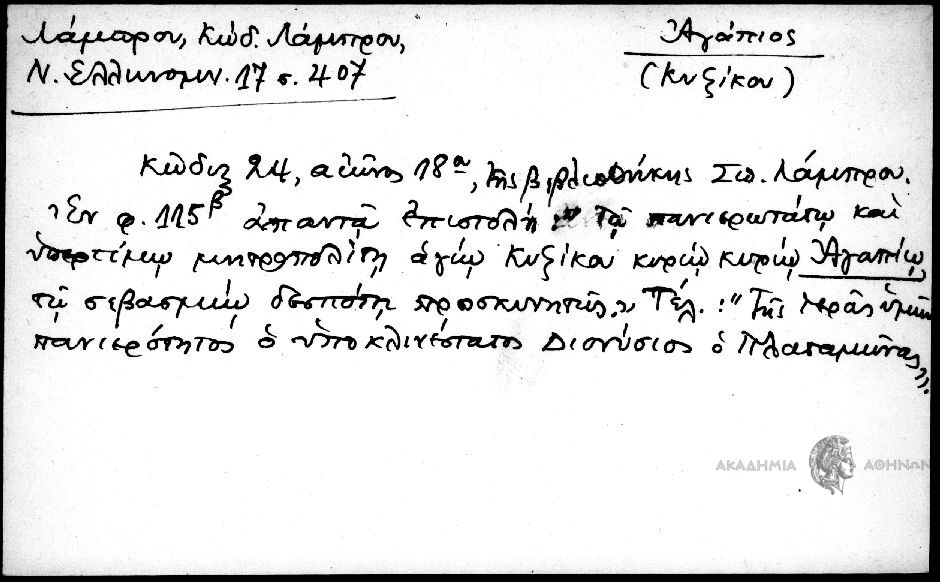 Λάμπρου, Κώδ. Λάμπρου,
Ν. Ἑλληνομν. 17 σ. 407
Ἀγάπιος
(Κυζίκου)
Κῶδιξ 24, αἰῶνος 18ᵃ, τῆς βιβλιοθήκης Σπ. Λάμπρου.
Ἐν φ. 115β ἀπαντᾷ ἐπιστολή: "τῷ πανιερωτάτῳ καὶ
ὑπερτίμῳ μητροπολίτῃ ἁγίῳ Κυζίκου κυρίῳ κυρίῳ Ἀγαπίῳ
τῷ σεβασμίῳ δεσπότῃ προσκυνητῶς." Τέλ.: "Τῆς ἱερᾶς ὑμῶν
πανιερότητος ὁ ὑποκλινέστατος Διονύσιος ὁ Πλαταμῶνος".
ΑΚΑΔΗΜΙΑ ΑΘΗΝΩΝ